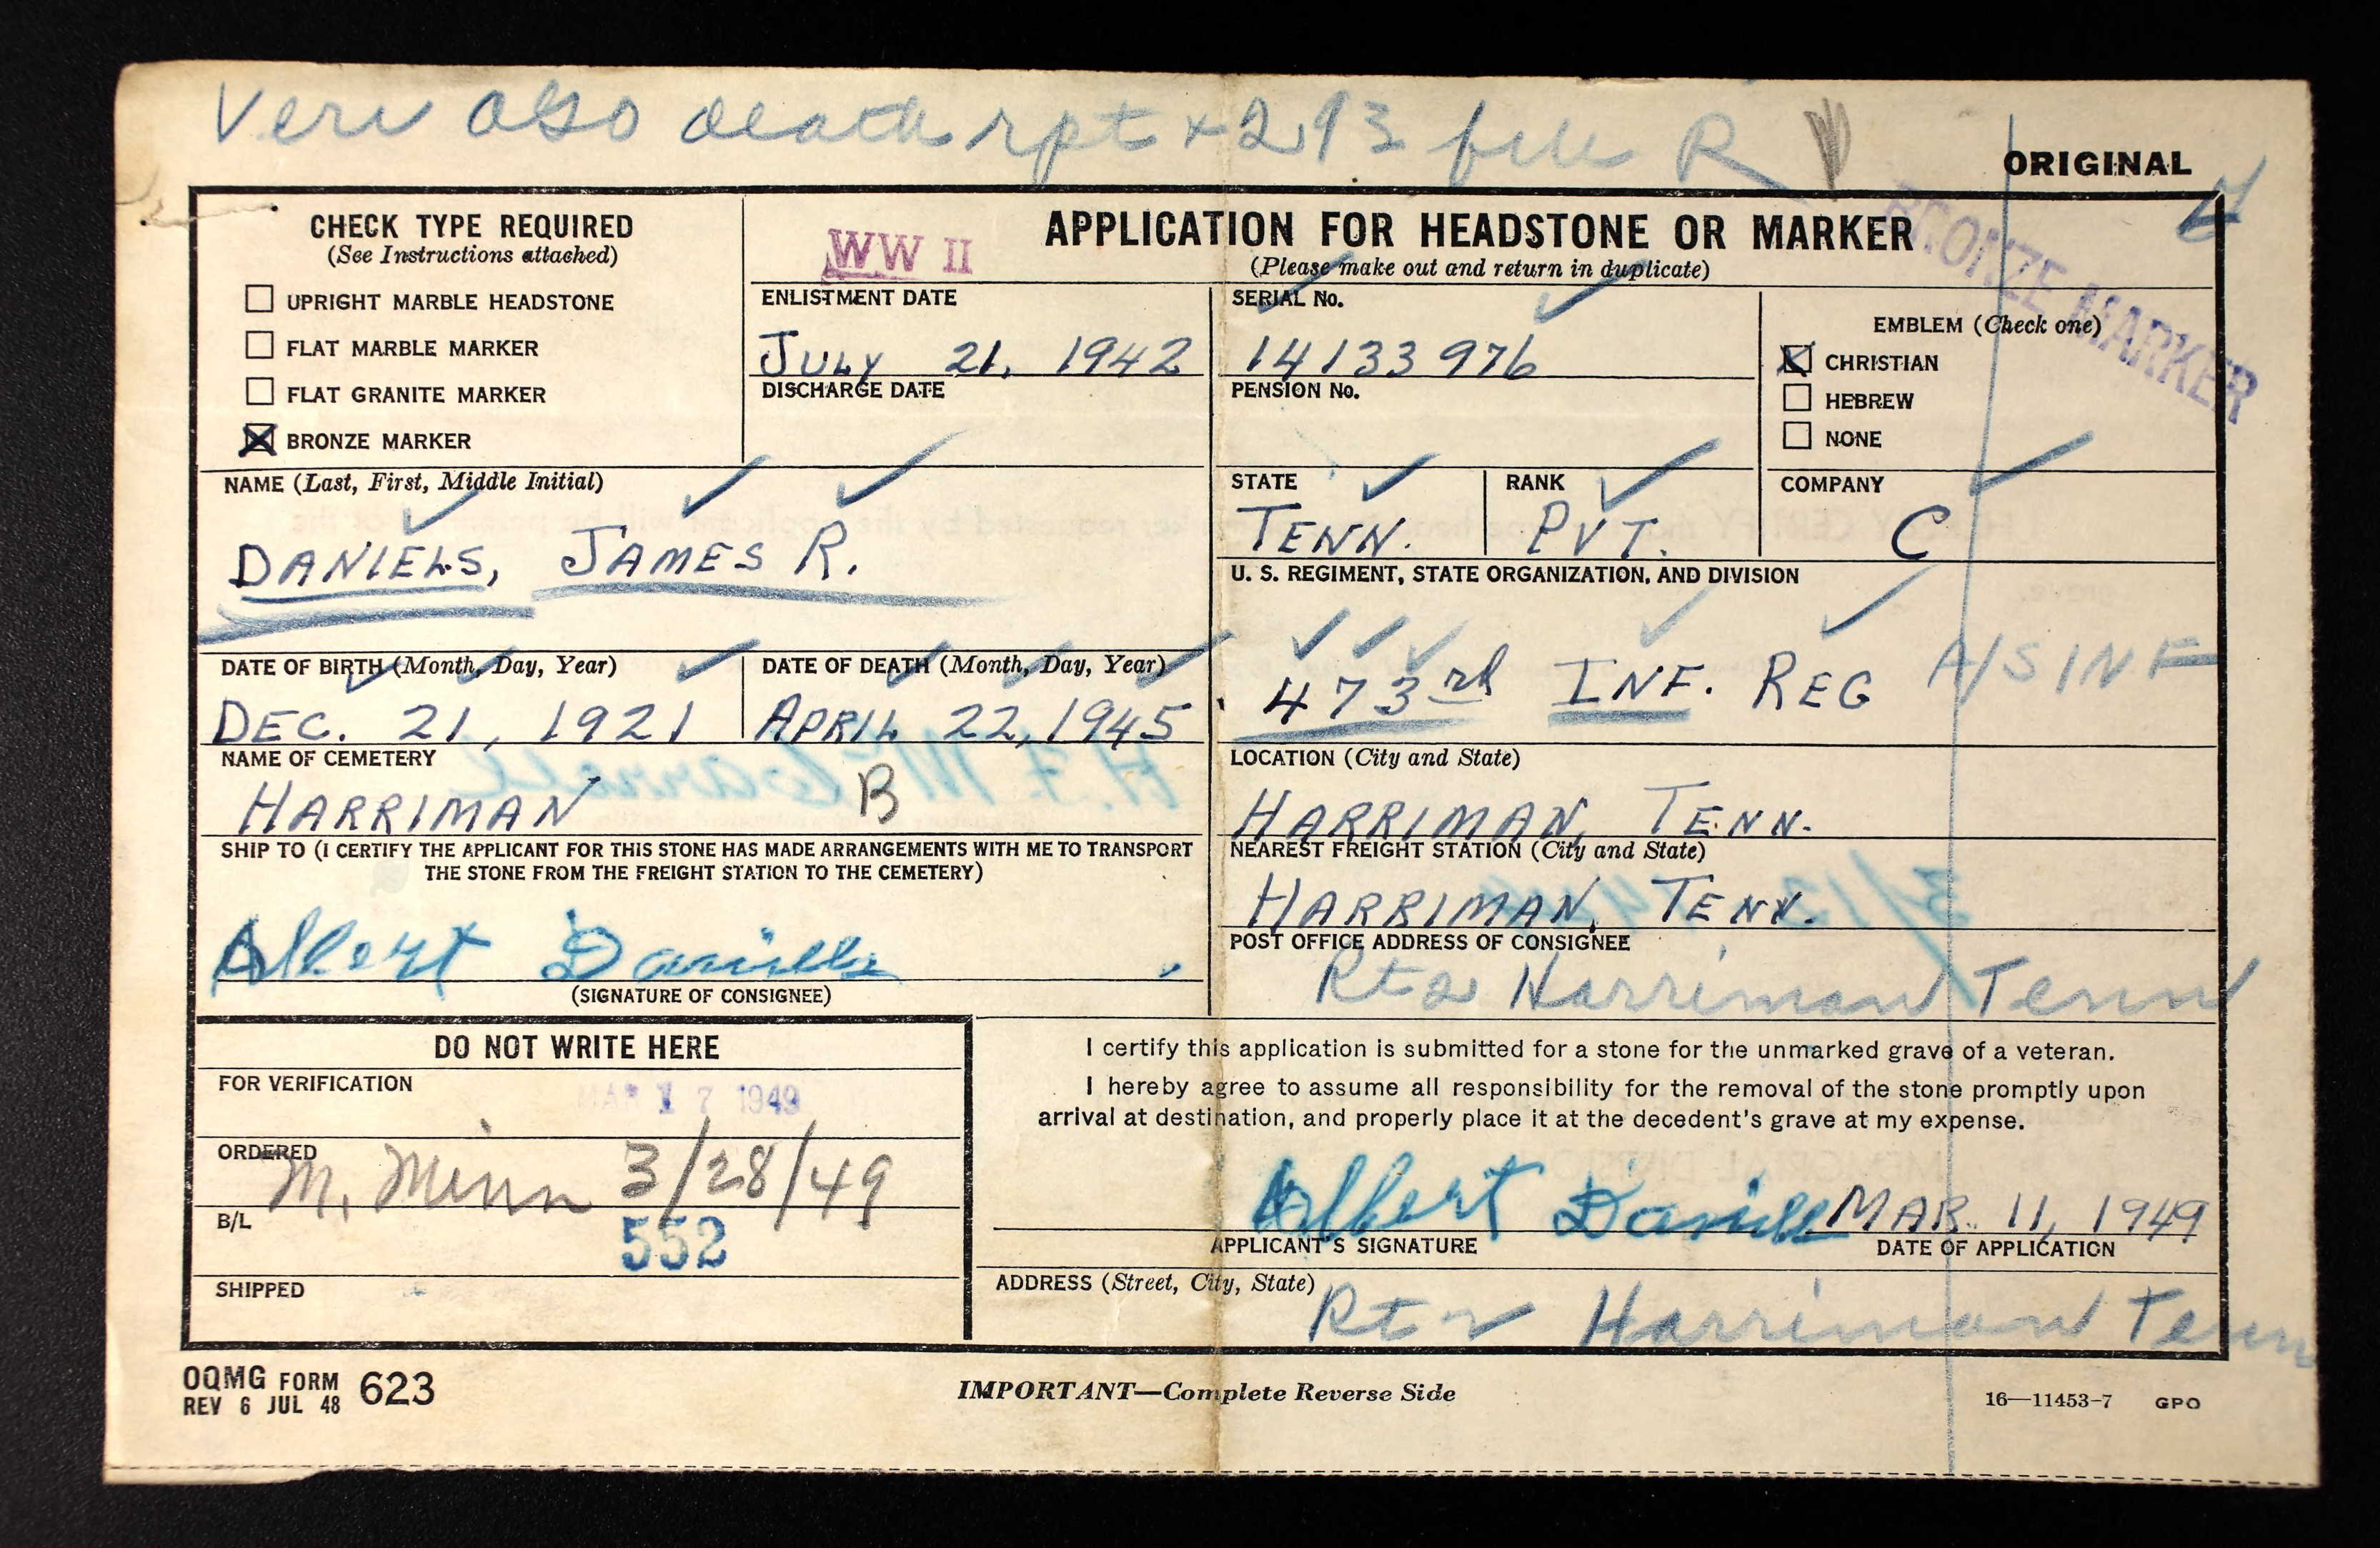 Veri also death rpt + 293 file R
ORIGINAL
CHECK TYPE REQUIRED
(See Instructions attached)
UPRIGHT MARBLE HEADSTONE
FLAT MARBLE MARKER
FLAT GRANITE MARKER
BRONZE MARKER
WW II
APPLICATION FOR HEADSTONE OR MARKER
(Please make out and return in duplicate)
BRONZE MARKER
ENLISTMENT DATE
JULY 21, 1942
DISCHARGE DATE
SERIAL No.
14133976
PENSION No.
EMBLEM (Check one)
CHRISTIAN
HEBREW
NONE
NAME (Last, First, Middle Initial)
DANIELS, JAMES R.
STATE
TENN.
RANK
PVT.
COMPANY
C
U. S. REGIMENT, STATE ORGANIZATION, AND DIVISION
473rd INF. REG A/S INF
DATE OF BIRTH (Month, Day, Year)
DEC. 21, 1921
DATE OF DEATH (Month, Day, Year)
APRIL 22, 1945
NAME OF CEMETERY
HARRIMAN B
LOCATION (City and State)
HARRIMAN, TENN.
SHIP TO (I CERTIFY THE APPLICANT FOR THIS STONE HAS MADE ARRANGEMENTS WITH ME TO TRANSPORT
THE STONE FROM THE FREIGHT STATION TO THE CEMETERY)
Albert Daniels
(SIGNATURE OF CONSIGNEE)
NEAREST FREIGHT STATION (City and State)
HARRIMAN, TENN.
POST OFFICE ADDRESS OF CONSIGNEE
Rt 2 Harriman Tenn
DO NOT WRITE HERE
FOR VERIFICATION
MAR 17 1949
ORDERED
M. Minn 3/28/49
B/L
552
SHIPPED
I certify this application is submitted for a stone for the unmarked grave of a veteran.
I hereby agree to assume all responsibility for the removal of the stone promptly upon
arrival at destination, and properly place it at the decedent's grave at my expense.
Albert Daniels MAR. 11, 1949
APPLICANT'S SIGNATURE
DATE OF APPLICATION
ADDRESS (Street, City, State)
Rt 2 Harriman Tenn
OQMG FORM 623
REV 6 JUL 48
IMPORTANT—Complete Reverse Side
16—11453-7 GPO